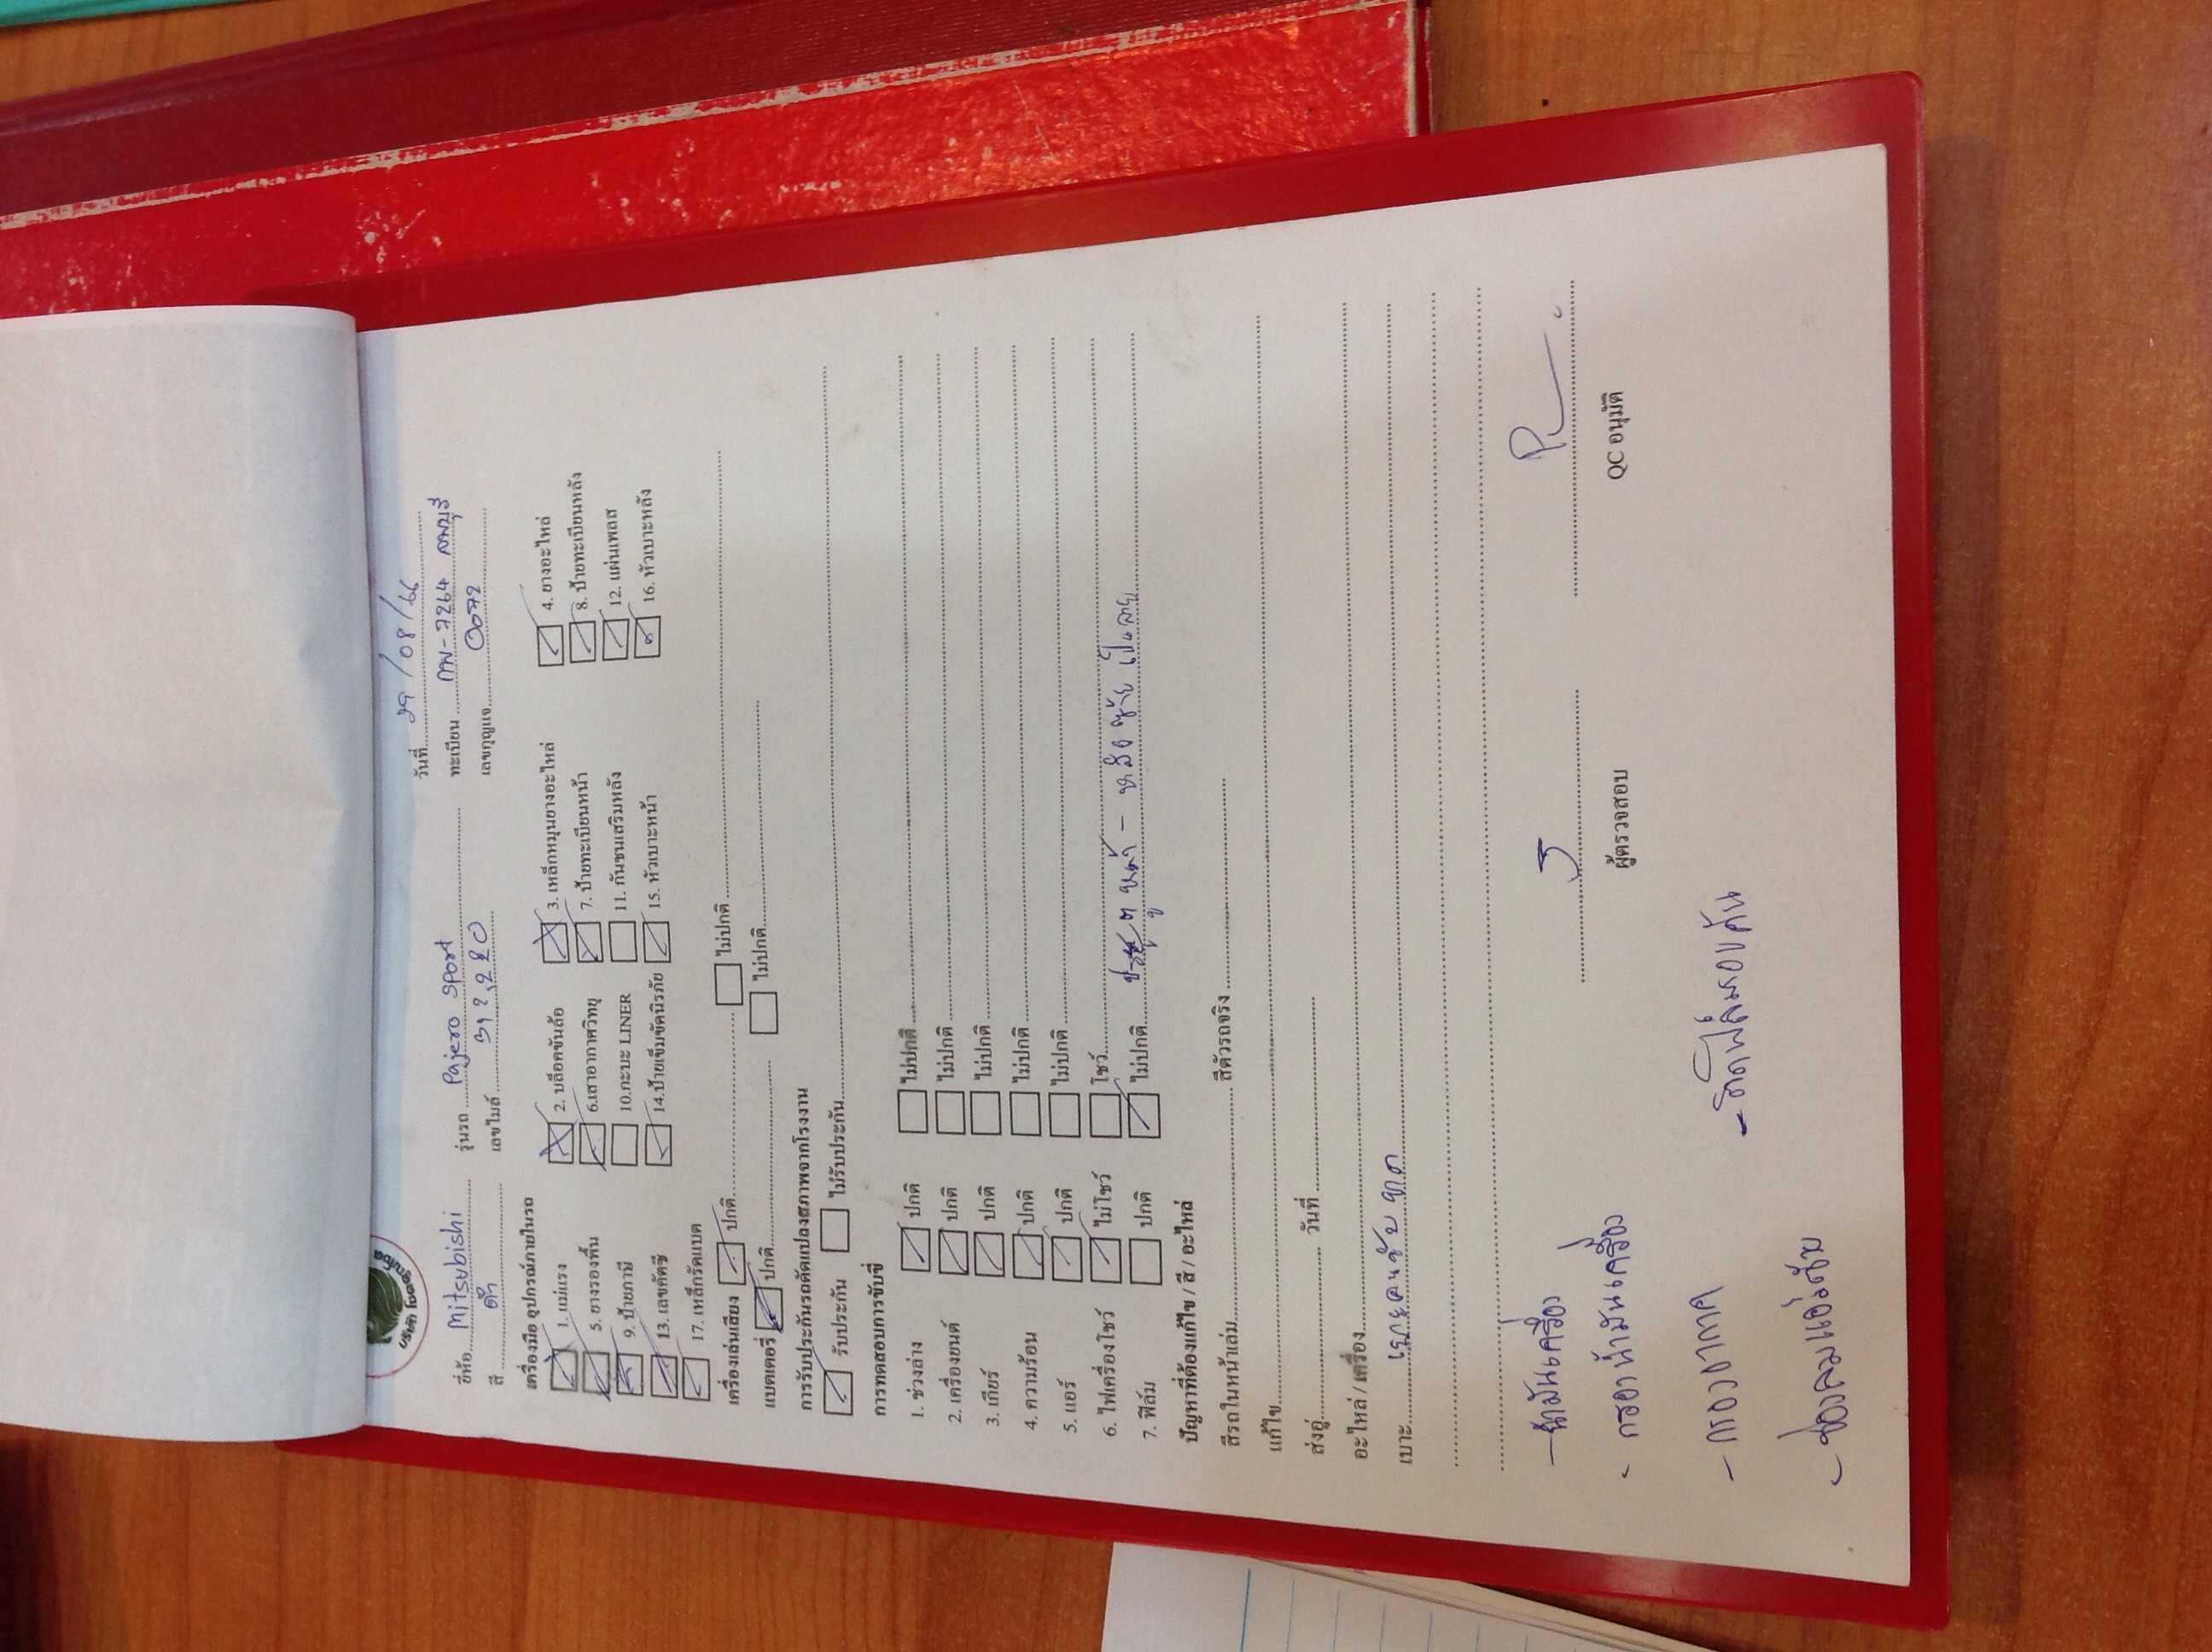 บริษัท โชคคูณโชค
วันที่ 29/08/66
ยี่ห้อ Mitsubishi รุ่นรถ Pajero Sport ทะเบียน กพ-7264 ลพบุรี
สี ดำ เลขไมล์ 317,280 เลขกุญแจ 0072
เครื่องมือ อุปกรณ์ภายในรถ
1. แม่แรง 2. บล็อคขันล้อ 3. เหล็กหมุนยางอะไหล่ 4. ยางอะไหล่
5. ยางรองพื้น 6.เสาอากาศวิทยุ 7. ป้ายทะเบียนหน้า 8. ป้ายทะเบียนหลัง
9. ป้ายภาษี 10.กะบะ LINER 11. กันชนเสริมหลัง 12. แผ่นเพลส
13. เลขคัตซี 14.ป้ายเข็มขัดนิรภัย 15. หัวเบาะหน้า 16. หัวเบาะหลัง
17. เหล็กรัดแบต
เครื่องเล่นเสียง ปกติ ไม่ปกติ
แบตเตอรี่ ปกติ ไม่ปกติ
การรับประกันรถดัดแปลงสภาพจากโรงงาน
รับประกัน ไม่รับประกัน
การทดสอบการขับขี่
1. ช่วงล่าง ปกติ ไม่ปกติ
2. เครื่องยนต์ ปกติ ไม่ปกติ
3. เกียร์ ปกติ ไม่ปกติ
4. ความร้อน ปกติ ไม่ปกติ
5. แอร์ ปกติ ไม่ปกติ
6. ไฟเครื่องโชว์ ไม่โชว์ โชว์
7. ฟิล์ม ปกติ ไม่ปกติ ประตูหน้า - หลัง ซ้าย เป็นลาย
ปัญหาที่ต้องแก้ไข / สี / อะไหล่
สีรถในหน้าเล่ม สีตัวรถจริง
แก้ไข
ส่งอู่ วันที่
อะไหล่ / เครื่อง
เบาะ เบาะคนขับ ขาด
ผู้ตรวจสอบ QC อนุมัติ
- น้ำมันเครื่อง
- กรองน้ำมันเครื่อง
- กรองอากาศ - ติดฟิล์มรอบคัน